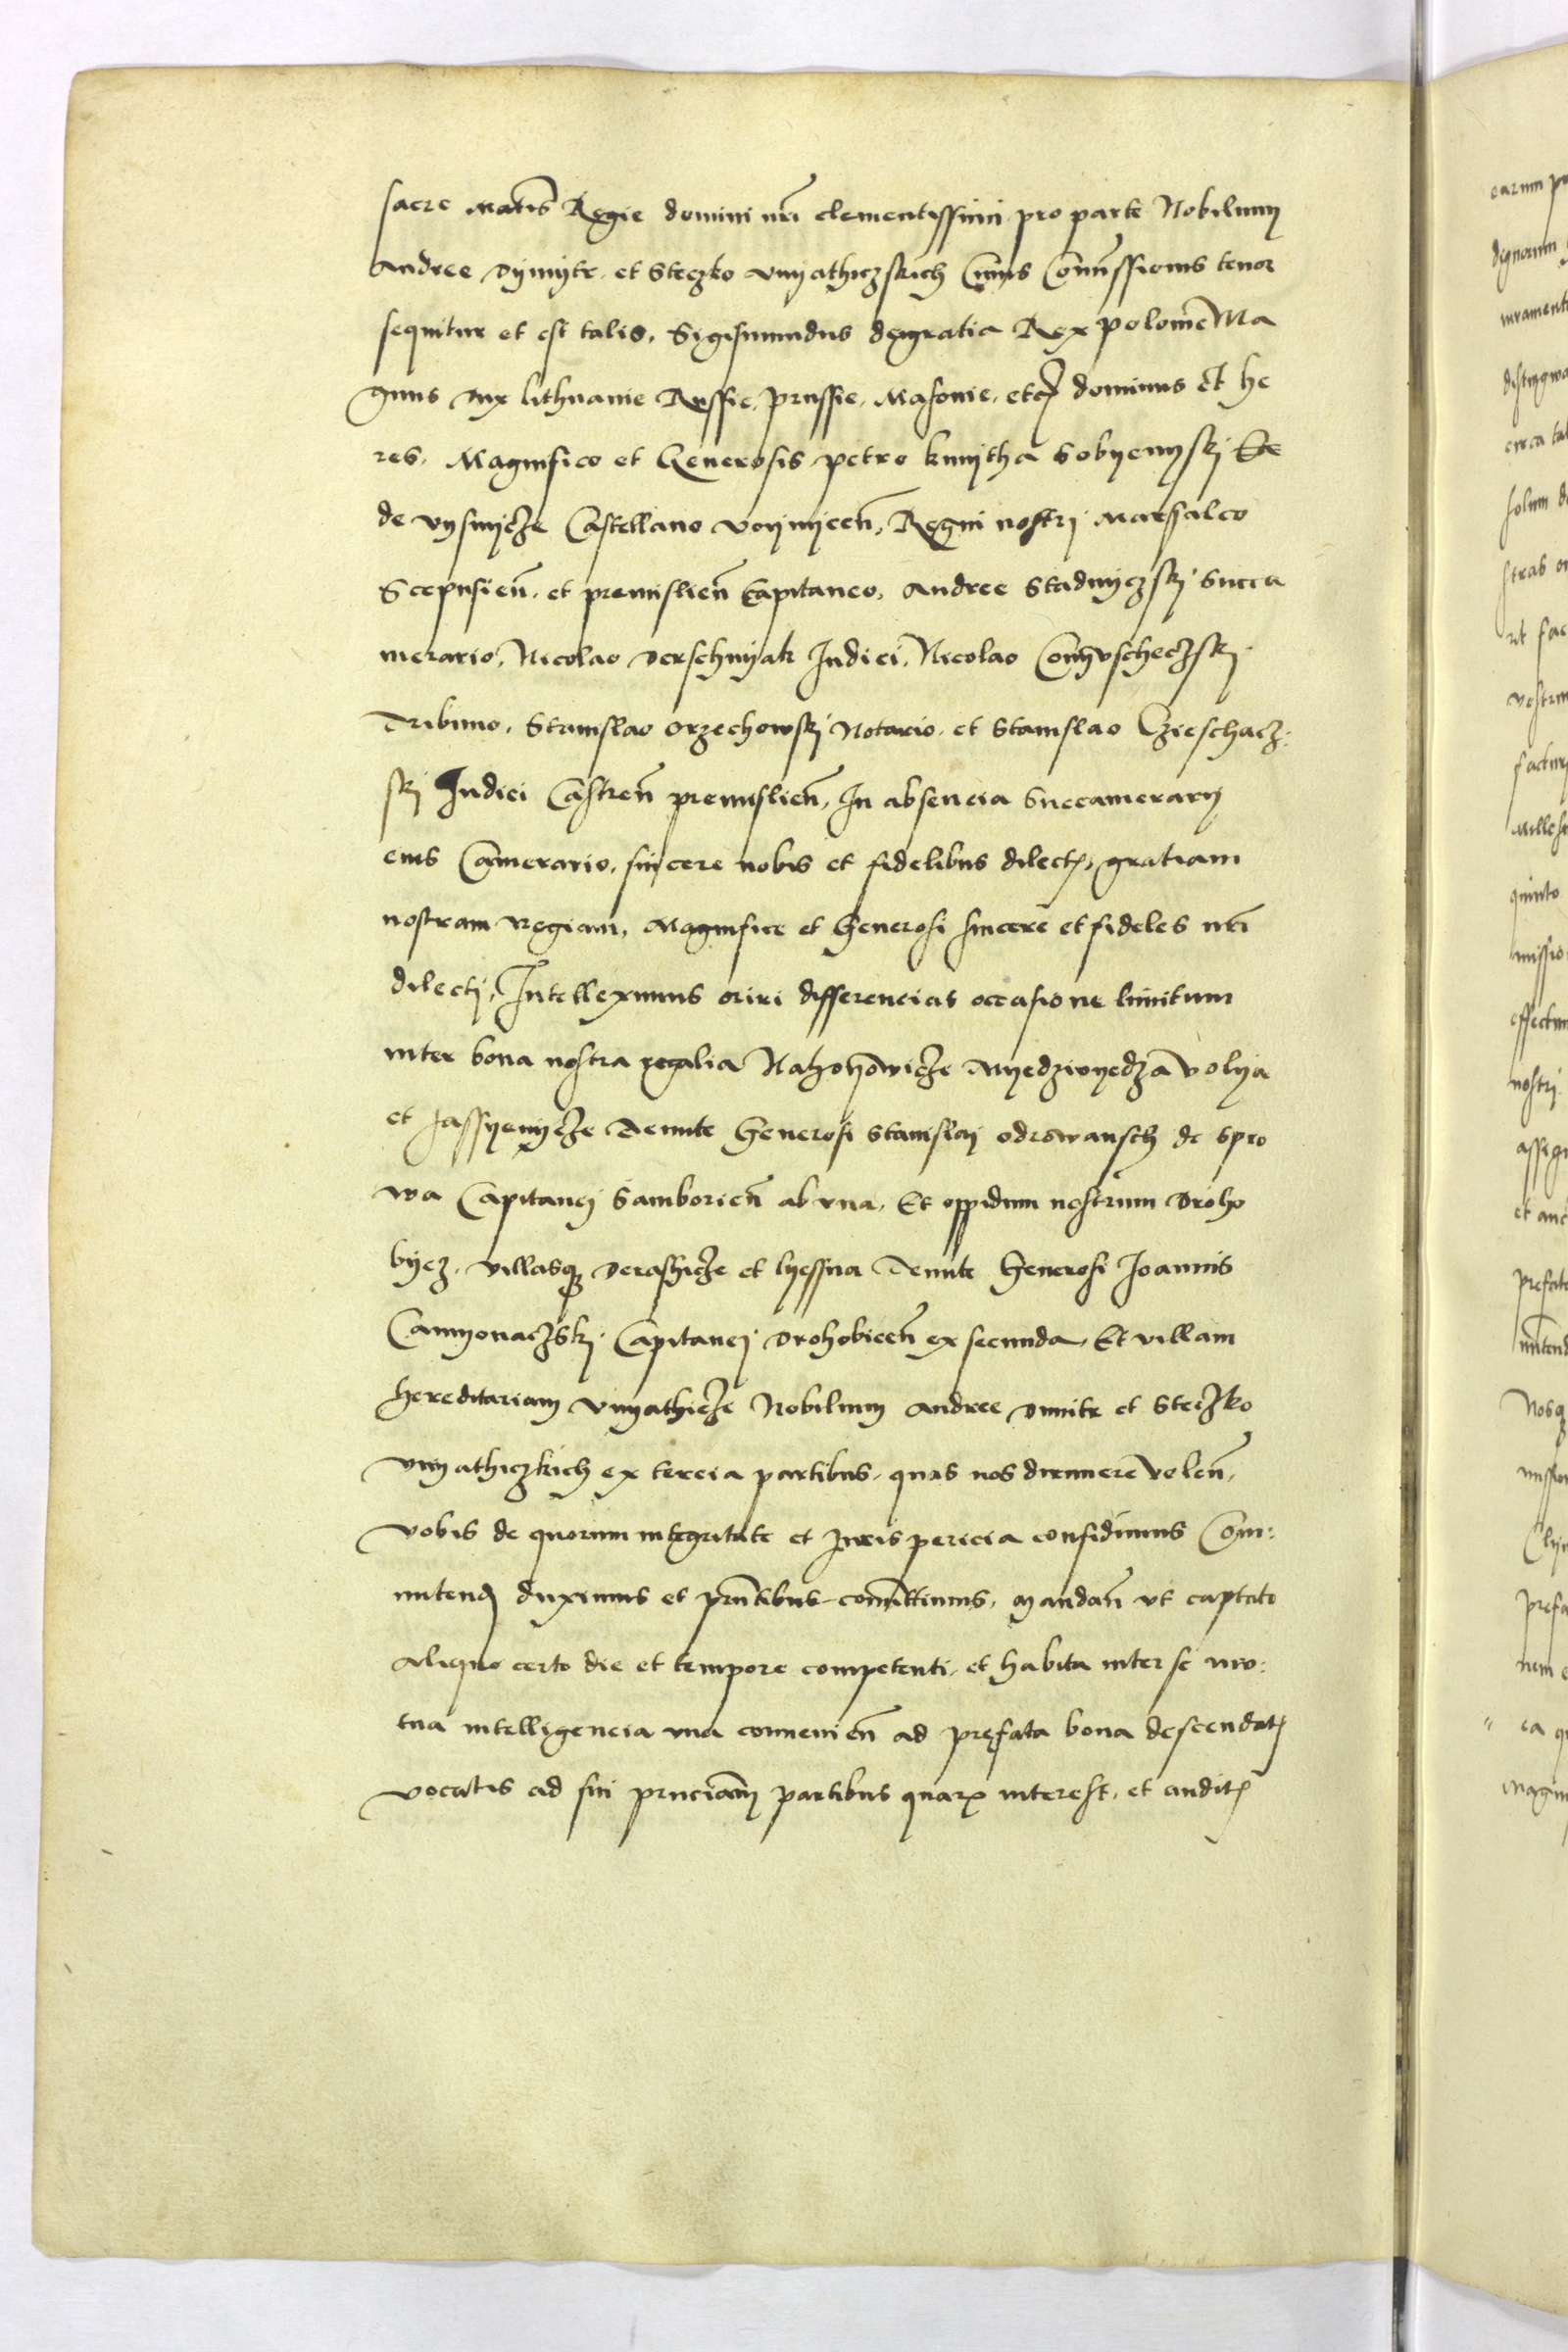 sacre Maṫis Regie domini nr̄i clementissimi pro parte Nobilium
Andree Dymytr et Steczko Vnyathiczskich Cuius Com̄issionis tenor
sequitur et est talis. Sigismundus dei gratia Rex polonie Ma
gnus dux lithuanie Russie, prussie, Masouie, etc dominus et he
res. Magnifico et Generosis petro kmytha Sobyenysky
de vysnycze Castellano voynyceñ, Regni nostrj Marsalco
Scepusieñ et premislieñ Capitaneo, Andree Stadnyczskj Succa
merario, Nicolao Derschnyak Iudici, Nicolao
Tribuno, Stanislao orzechowskj Notario et Stanislao Czieschacz-
skj Iudici Castreñ premislieñ, In absencia Succamerarij
eius Camerario, sincere nobis et fidelibus dilectis, gratiam
nostram regiam, Magnifice et Generosi sincere et fideles nr̄i
dilectj, Intelleximus oriri differencias occasione limitum
inter bona nostra regalia Nahohowicze Nyedzwyedza volya
et Jassyenycze Tenute Generosi Stanislaj odrowansch de spro
wa Capitanej Samborieñ ab vna, Et oppidum nostrum Droho
bycz, villasq derazhicze et lyessna Tenute Generosi Ioannis
Camyonaczskj Capitanej drohobiceñ ex secunda, Et villam
hereditariam vnyathicze Nobilium Andree dmitr et Steczko
vnyathiczkich ex tercia partibus, quas nos dirimere voleñ,
vobis de quorum integritate et Iuris pericia confidimus Com-
mitenḍ duximus et prn̄tibus com̄ittimus, mandañ vt captato
aliquo certo die et tempore competenti, et habita inter se mu-
tua intelligencia vna conuenieñ ad prefata bona descendatis
vocatis ad sui prn̄ciam partibus quarum interest, et auditis
earum
dignorum
iurament
circa tal
solum
ut fac
vestrum
quinto
missio
effectum
nostrj
assig
et
prefat
Nosq
prefa
nem
ea
Magni